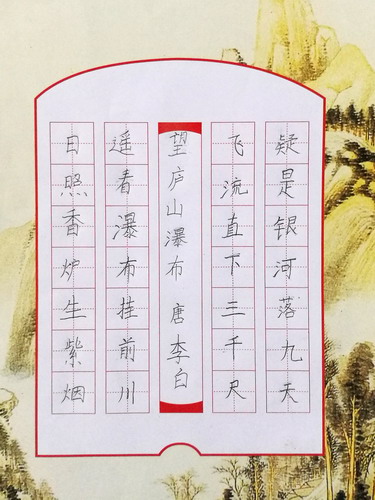 日照香炉生紫烟
遥看瀑布挂前川
望庐山瀑布 唐 李白
飞流直下三千尺
疑是银河落九天